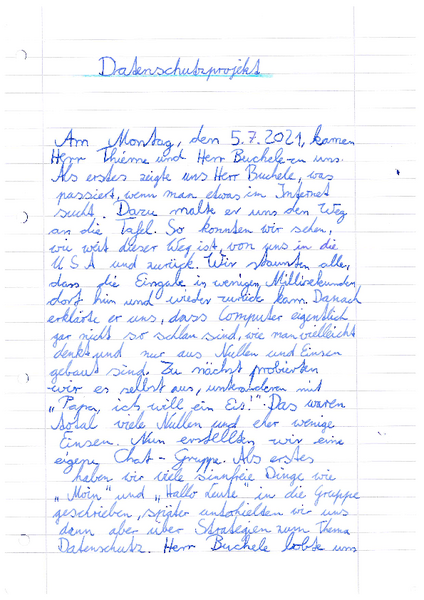 Datenschutzprojekt
Am Montag, den 5.7.2021, kamen
Herr Thieme und Herr Buchele zu uns.
Als erstes zeigte uns Herr Buchele, was
passiert, wenn man etwas im Internet
sucht. Dazu malte er uns den Weg
an die Tafel. So konnten wir sehen,
wie weit dieser Weg ist, von uns in die
USA und zurück. Wir staunten alle,
dass die Eingabe in wenigen Millisekunden
dort hin und wieder zurück kam. Danach
erklärte er uns, dass Computer eigentlich
gar nicht so schlau sind, wie man vielleicht
denkt und nur aus Nullen und Einsen
gebaut sind. Zu nächst probierten
wir es selbst aus, unteranderem mit
„Papa, ich will ein Eis!". Das waren
total viele Nullen und eher wenige
Einsen. Nun erstellten wir eine
eigene Chat-Gruppe. Als erstes
haben wir viele sinnfreie Dinge wie
„Moin" und „Hallo Leute" in die Gruppe
geschrieben, später unterhielten wir uns
dann aber über Strategien zum Thema
Datenschutz. Herr Buchele lobte uns